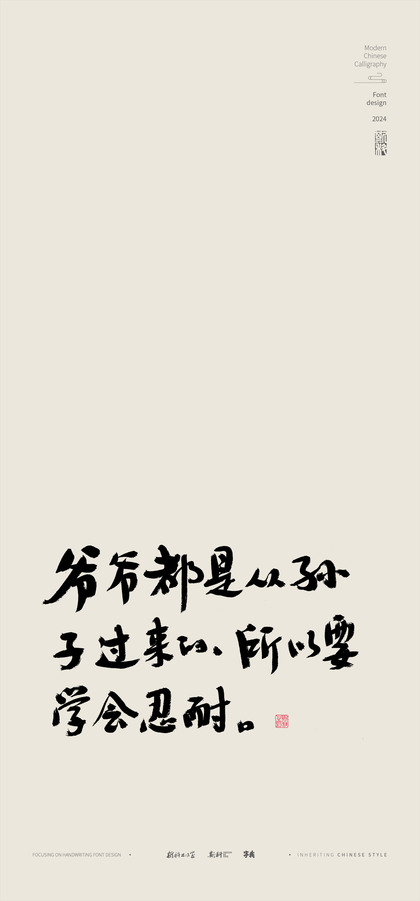 Modern
Chinese
Calligraphy
Font
design
2024
爷爷都是从孙
子过来的、所以要
学会忍耐。
FOCUSING ON HANDWRITING FONT DESIGN
INHERITING CHINESE STYLE